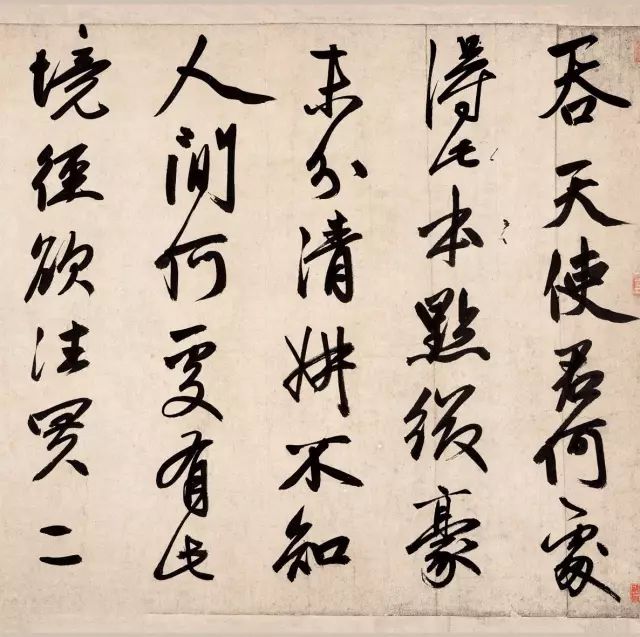 吞天使君何處
得此本點綴豪
末分清妍不知
人間何處有此
境徑欲往買二